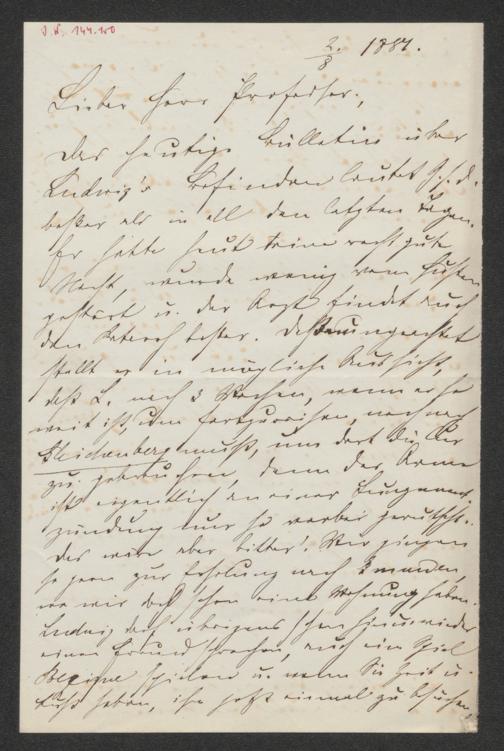 I.N. 144.150
2/8. 1884.
Lieber Herr Professor,
Das heutige Bulletin über
Ludwig's Befinden lautet G. s. d.
besser als in all den letzten Tagen.
Er hatte heut seine recht gute
Nacht, wurde wenig vom Husten
gestört u. der Arzt findet auch
den Katarrh besser. Dessenungeachtet
stellt er in mögliche Aussicht,
daß L. nach 3 Wochen, wenn er so
weit ist um fortzureisen, noch nach
Gleichenberg muß, um dort die Cur
zu gebrauchen, denn der Arme
ist eigentlich an einer Lungenent-
zündung nur so vorbei gerutscht.
Das wäre aber bitter! Wir gingen
so gern zur Erholung nach Gmunden,
wo wir doch schon eine Wohnung haben.
Ludwig darf übrigens schon hin u. wieder
einen Freund sprechen, auch ein Spiel
Bezique spielen u. wenn Sie Zeit u.
Lust haben, ihn jetzt einmal zu besuchen,